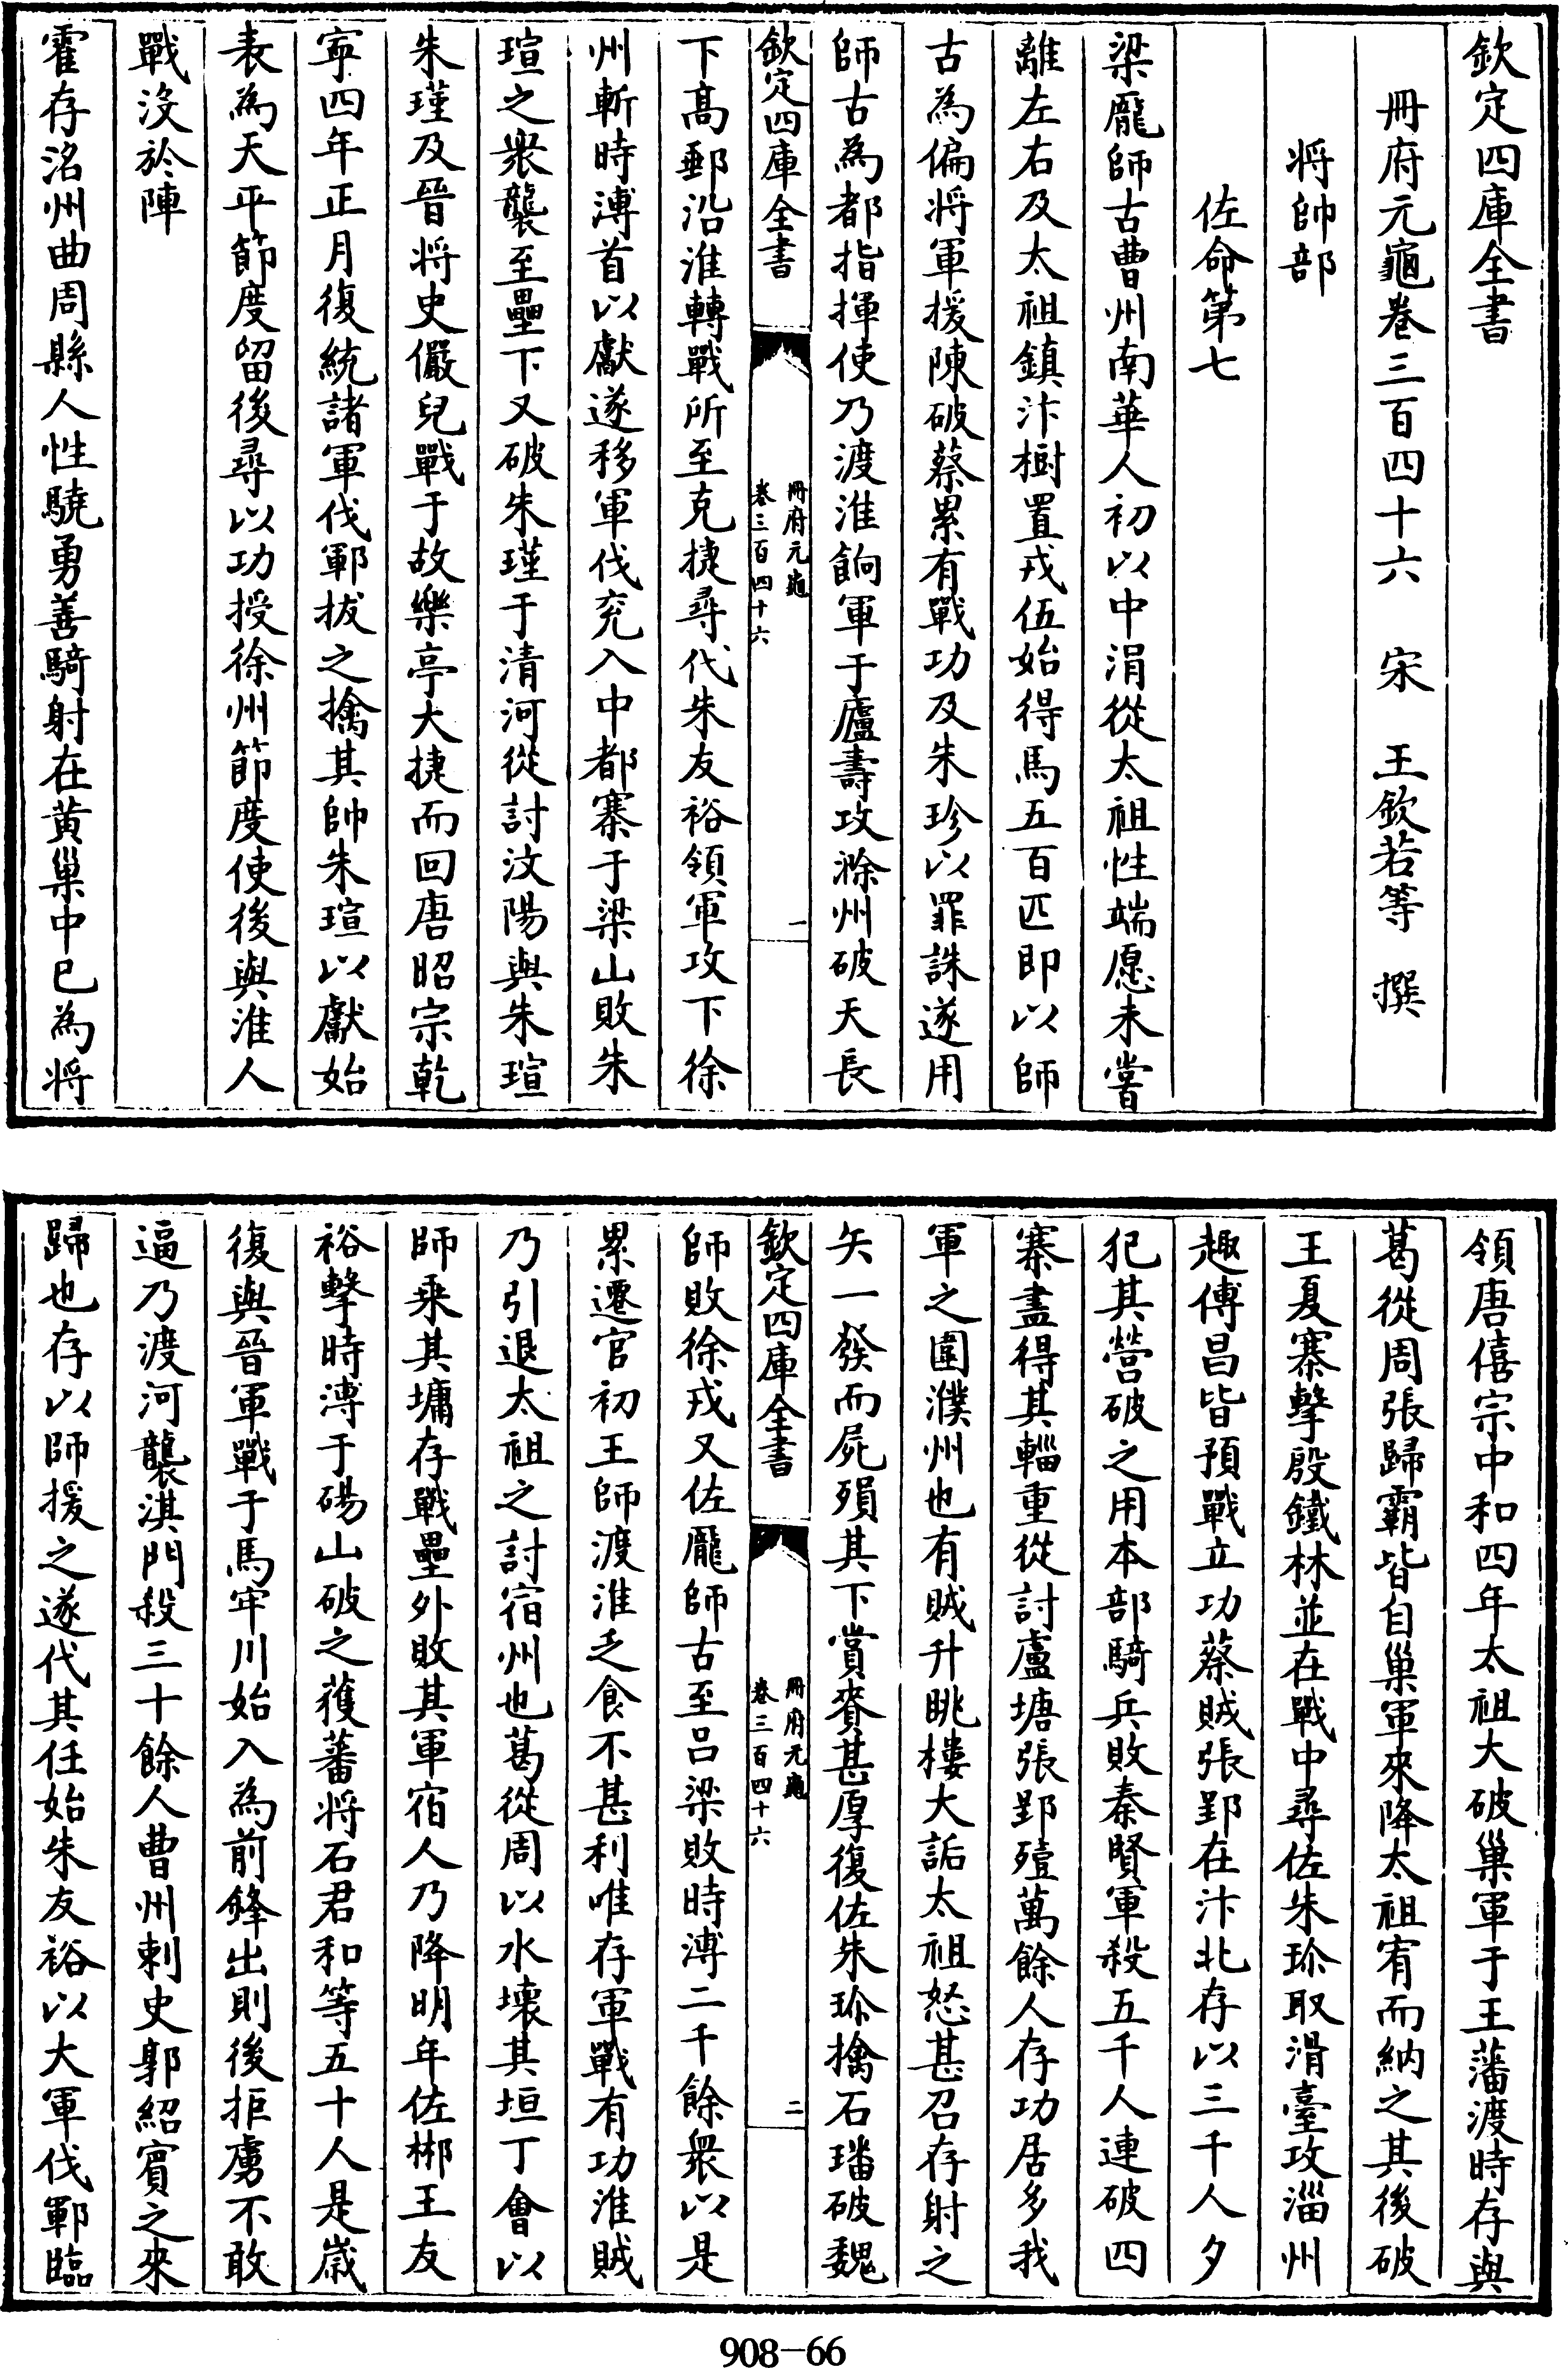 欽定四庫全書
冊府元龜卷三百四十六　宋　王欽若等　撰
將帥部
佐命第七
梁龐師古曹州南華人初以中涓從太祖性端愿未嘗
離左右及太祖鎮汴樹置戎伍始得馬五百匹即以師
古為偏將軍援陳破蔡累有戰功及朱珍以罪誅遂用
師古為都指揮使乃渡淮餉軍于廬壽攻滁州破天長
欽定四庫全書
冊府元龜
卷三百四十六
一
下髙郵沿淮轉戰所至克捷尋代朱友裕領軍攻下徐
州斬時溥首以獻遂移軍伐兖入中都寨于梁山敗朱
瑄之衆襲至壘下又破朱瑾于清河從討汶陽與朱瑄
朱瑾及晉將史儼兒戰于故樂亭大捷而回唐昭宗乾
寜四年正月復統諸軍伐鄆拔之擒其帥朱瑄以獻始
表為天平節度留後尋以功授徐州節度使後與淮人
戰沒於陣
霍存洺州曲周縣人性驍勇善騎射在黄巢中已為將
領唐僖宗中和四年太祖大破巢軍于王藩渡時存與
葛從周張歸霸皆自巢軍來降太祖宥而納之其後破
王夏寨擊殷鐵林並在戰中尋佐朱珎取滑臺攻淄州
趣傅昌皆預戰立功蔡賊張郢在汴北存以三千人夕
犯其營破之用本部騎兵敗秦賢軍殺五千人連破四
寨盡得其輜重從討盧塘張郢殪萬餘人存功居多我
軍之圍濮州也有賊升眺樓大詬太祖怒甚召存射之
矢一發而屍殞其下賞賚甚厚復佐朱珎擒石璠破魏
欽定四庫全書
冊府元龜
卷三百四十六
二
師敗徐戎又佐龐師古至吕梁敗時溥二千餘衆以是
累遷官初王師渡淮乏食不甚利唯存軍戰有功淮賊
乃引退太祖之討宿州也葛從周以水壞其垣丁會以
師乗其墉存戰壘外敗其軍宿人乃降明年佐郴王友
裕擊時溥于碭山破之獲蕃將石君和等五十人是嵗
復與晉軍戰于馬牢川始入為前鋒出則後拒虜不敢
逼乃渡河襲淇門殺三十餘人曹州刺史郭紹賓之來
歸也存以師援之遂代其任始朱友裕以大軍伐鄆臨
908-66